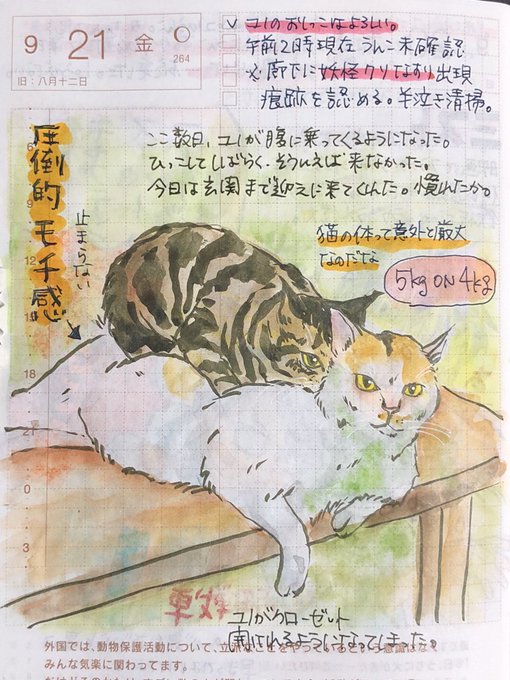 9 21 金
264
旧:八月十二日
ユノのおしっこはよろしい。
午前2時現在うんこ未確認
※廊下に妖怪クソなすり出現
痕跡を認める。半泣き清掃。
圧倒的モチ感
止まらない
ここ数日、ユノが腹に乗ってくるようになった。
ひっこししてしばらく、そういえば来なかった。
今日は玄関まで迎えに来てくれた。慣れたかな。
猫の体って意外と頑丈
なのだな
5kg ON 4kg
6
9
12
18
21
0
3
ユノがクローゼット
開けれるようになってしまった。
外国では、動物保護活動について、
みんな気楽に関わってます。